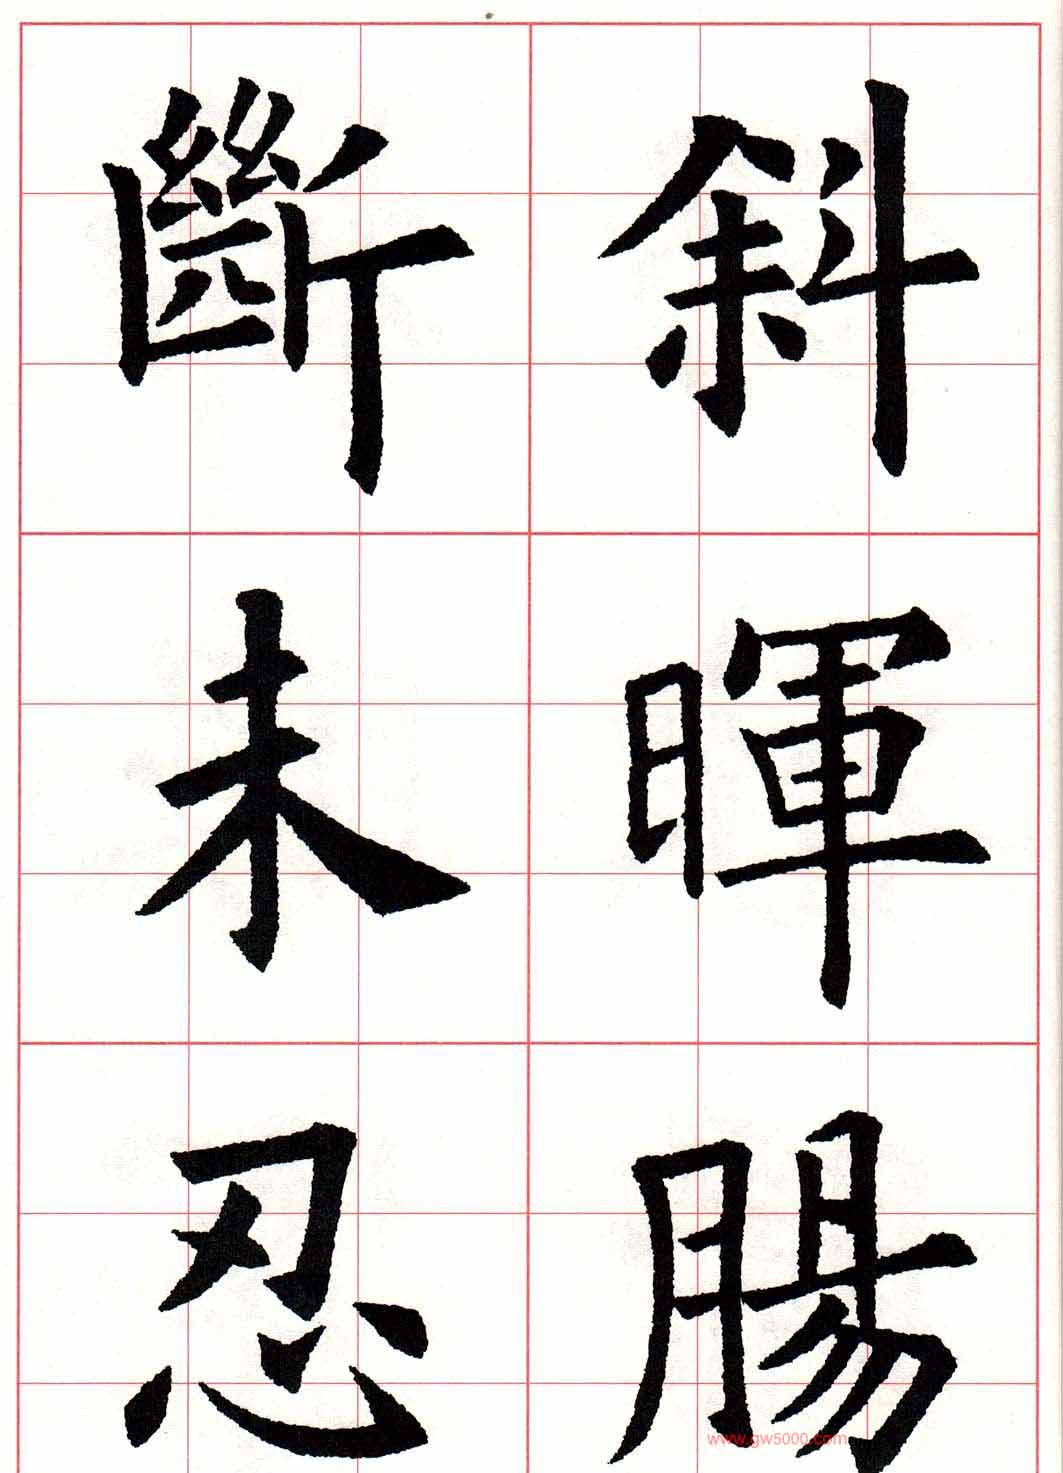 斜暉腸
斷未忍
www.gw5000.com